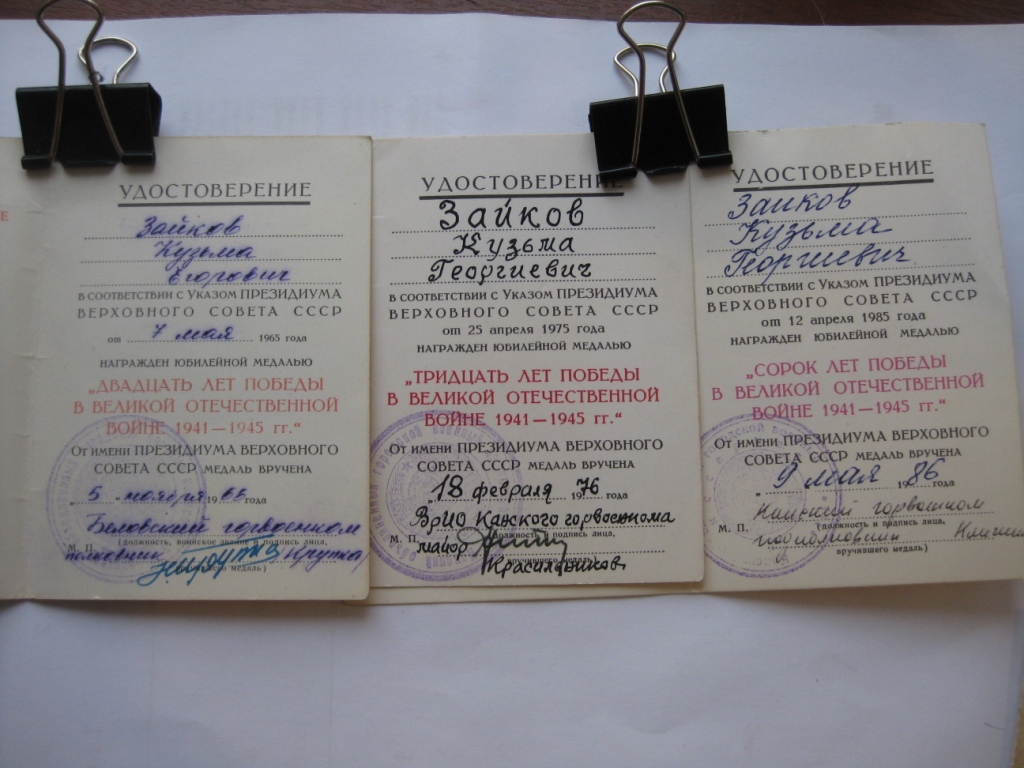 УДОСТОВЕРЕНИЕ
Зайков
Кузьма
Егорович
В СООТВЕТСТВИИ С УКАЗОМ ПРЕЗИДИУМА
ВЕРХОВНОГО СОВЕТА СССР
от 7 мая 1965 года
НАГРАЖДЕН ЮБИЛЕЙНОЙ МЕДАЛЬЮ
„ДВАДЦАТЬ ЛЕТ ПОБЕДЫ
В ВЕЛИКОЙ ОТЕЧЕСТВЕННОЙ
ВОЙНЕ 1941—1945 гг.“
ОТ ИМЕНИ ПРЕЗИДИУМА ВЕРХОВНОГО
СОВЕТА СССР МЕДАЛЬ ВРУЧЕНА
„5 ноября 1966 года
Беловский горвоенком
(должность, воинское звание и подпись лица,
М. П. полковник Крутка
вручившего медаль)
УДОСТОВЕРЕНИЕ
Зайков
Кузьма
Георгиевич
В СООТВЕТСТВИИ С УКАЗОМ ПРЕЗИДИУМА
ВЕРХОВНОГО СОВЕТА СССР
от 25 апреля 1975 года
НАГРАЖДЕН ЮБИЛЕЙНОЙ МЕДАЛЬЮ
„ТРИДЦАТЬ ЛЕТ ПОБЕДЫ
В ВЕЛИКОЙ ОТЕЧЕСТВЕННОЙ
ВОЙНЕ 1941—1945 гг.“
ОТ ИМЕНИ ПРЕЗИДИУМА ВЕРХОВНОГО
СОВЕТА СССР МЕДАЛЬ ВРУЧЕНА
„18 февраля 1976
ВрИО Канского горвоенкома
М. П. (должность и подпись лица,
майор
вручившего медаль)
Красильников
УДОСТОВЕРЕНИЕ
Зайков
Кузьма
Георгиевич
В СООТВЕТСТВИИ С УКАЗОМ ПРЕЗИДИУМА
ВЕРХОВНОГО СОВЕТА СССР
от 12 апреля 1985 года
НАГРАЖДЕН ЮБИЛЕЙНОЙ МЕДАЛЬЮ
„СОРОК ЛЕТ ПОБЕДЫ
В ВЕЛИКОЙ ОТЕЧЕСТВЕННОЙ
ВОЙНЕ 1941—1945 гг.“
ОТ ИМЕНИ ПРЕЗИДИУМА ВЕРХОВНОГО
СОВЕТА СССР МЕДАЛЬ ВРУЧЕНА
„9 мая 1986 года
горвоенком
М. П. (должность и подпись лица,
вручившего медаль)